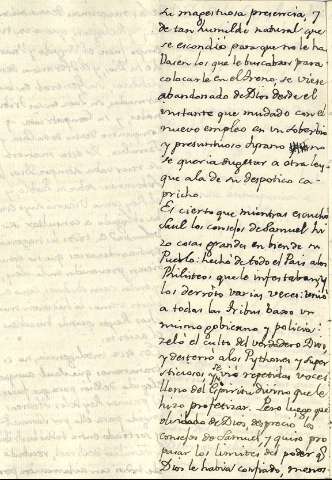 su magestuosa presencia, y
de tan humilde natural que
se escondio para que no le ha
llasen los que le buscaban para
colocarle en el trono, se viese
abandonado de Dios desde el
instante que mudado con el
nuevo empleo en un soberbio
y presuntuoso tyrano no
se queria sugetar a otra ley
que a la de su despotico ca
pricho.
Es cierto que mientras escuchó
Saul los consejos de Samuel hi
zo cosas grandes en bien de su
Pueblo: hechó de todo el Pais a los
Philisteos que le infestaban, y
los derrotó varias veces: unió
a todas las tribus baxo un
mismo govierno y policia:
zeló el culto del verdadero Dios,
y desterro a los Pythones y super
sticiosos: se vio repetidas veces
lleno del Espiritu divino que le
hizo profetizar. Pero luego que
olvidado de Dios, desprecio los
consejos de Samuel, y quiso pro
pasar los limites del poder q
Dios le habia confiado, menos